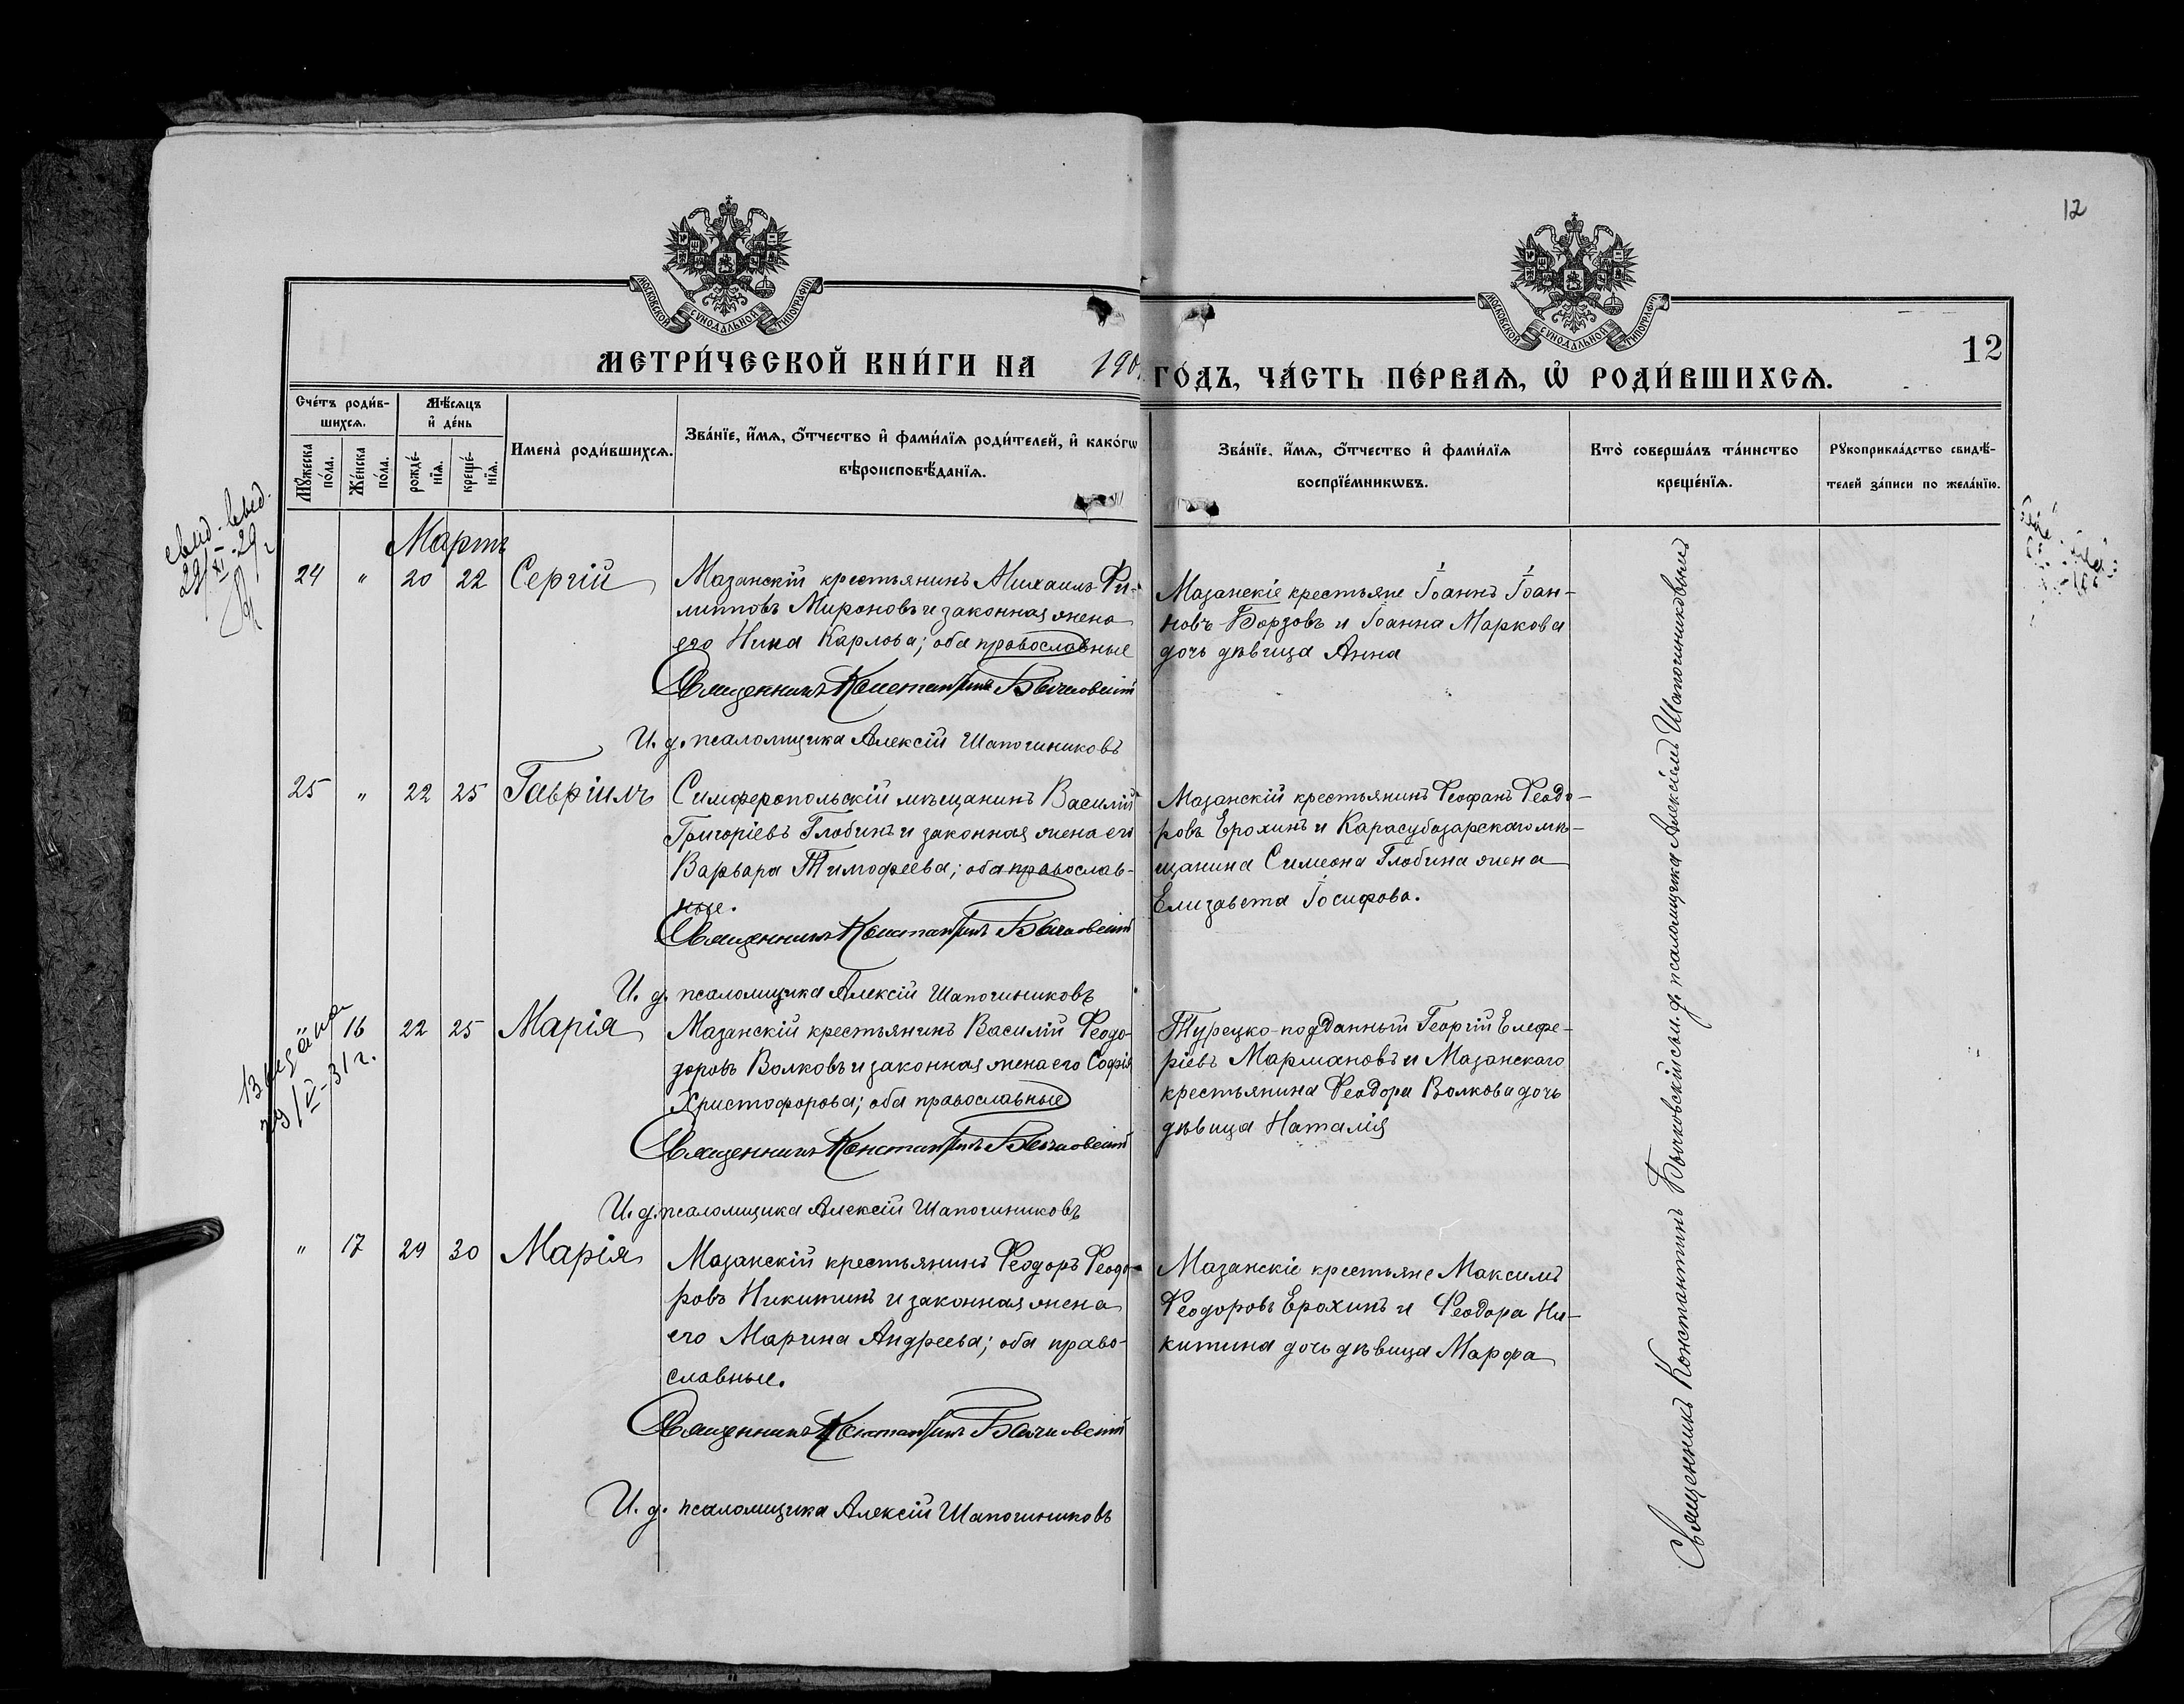 12
МОСКОВСКОЙ СѴНОДАЛЬНОЙ ТИПОГРАФІИ
МОСКОВСКОЙ СѴНОДАЛЬНОЙ ТИПОГРАФІИ
12
МЕТРИ́ЧЕСКОЙ КНИ́ГИ НА 190
ГО́ДЪ, ЧА́СТЬ ПЕ́РВАЯ, Ѡ҆ РОДИ́ВШИХСЯ.
Сче́тъ роди́в-
шихся.
Мꙋ́жеска по́ла.
Же́нска по́ла.
Мѣ́сяцъ
и҆ де́нь
рожде́-
нїя.
креще́-
нїя.
Имена̀ роди́вшихся.
Зва́нїе, и҆́мя, ѻ҆́тчество и҆ фами́лїя роди́телей, и҆ како́гѡ
вѣроисповѣ́данїя.
Зва́нїе, и҆́мя, ѻ҆́тчество и҆ фами́лїя
воспрїе́мникѡвъ.
Кто̀ соверша́лъ та́инство
креще́нїя.
Рꙋкоприкла́дство свидѣ́-
телей за́писи по жела́нїю.
Мартъ
24 " 20 22 Сергій
Мазанскій крестьянинъ Михаилъ Фи-
липповъ Мироновъ и законная жена
его Нина Карлова; оба православные
Священникъ Константинъ Бычковскій
И. д. псаломщика Алексій Шапошниковъ
Мазанскіе крестьяне Іоаннъ Іоан-
новъ Борзовъ и Іоанна Маркова
дочь дѣвица Анна
25 " 22 25 Гавріилъ
Симферопольскій мѣщанинъ Василій
Григоріевъ Глобинъ и законная жена его
Варвара Тимофеева; оба православ-
ные.
Священникъ Константинъ Бычковскій
И. д. псаломщика Алексій Шапошниковъ
Мазанскій крестьянинъ Феофанъ Феодо-
ровъ Ерохинъ и Карасубазарскаго мѣ-
щанина Симеона Глобина жена
Елизавета Іосифова.
16 22 25 Марія
Мазанскій крестьянинъ Василій Феодо-
доровъ Волковъ и законная жена его Софія
Христофорова; оба православные
Священникъ Константинъ Бычковскій
И. д. псаломщика Алексій Шапошниковъ
Турецко-подданный Георгій Елефе-
ріевъ Мармановъ и Мазанскаго
крестьянина Феодора Волкова дочь
дѣвица Наталія
" 17 29 30 Марія
Мазанскій крестьянинъ Феодоръ Феодо-
ровъ Никитинъ и законная жена
его Марина Андреева; оба право-
славные.
Священникъ Константинъ Бычковскій
И. д. псаломщика Алексій Шапошниковъ
Мазанскіе крестьяне Максимъ
Феодоровъ Ерохинъ и Феодора Ни-
китина дочь дѣвица Марфа
Священникъ Константинъ Бычковскій съ и. д. псаломщика Алексіемъ Шапошниковымъ